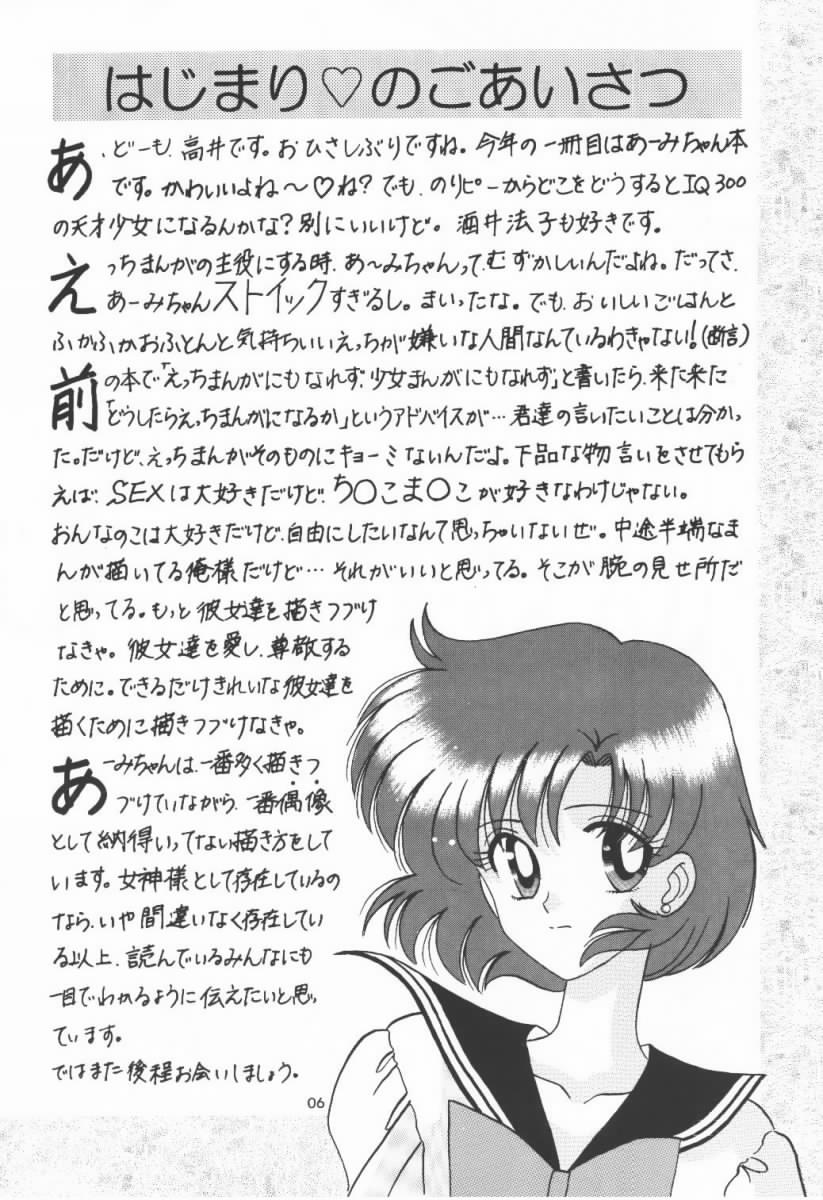 はじまり♡のごあいさつ
あ、どーも、高井です。おひさしぶりですね。今年の一冊目はあーみちゃん本
です。かわいいよね～♡ね？でも、のりピーからどこをどうするとIQ300
の天才少女になるんかな？別にいいけど。酒井法子も好きです。
えっちまんがの主役にする時、あ～みちゃんって、むずかしいんだよね。だってさ、
あーみちゃんストイックすぎるし。まいったな。でも、おいしいごはんと
ふかふかおふとんと気持ちいいえっちが嫌いな人間なんているわきゃない!(断言)
前の本で「えっちまんがにもなれず、少女まんがにもなれず」と書いたら、来た来た
「どうしたらえっちまんがになるか」というアドバイスが…君達の言いたいことは分かっ
た。だけど、えっちまんがそのものにキョーミないんだよ。下品な物言いをさせてもら
えば、SEXは大好きだけど、ち○こま○こが好きなわけじゃない。
おんなのこは大好きだけど、自由にしたいなんて思っちゃいないぜ。中途半端なま
んが描いてる俺様だけど…それがいいと思ってる。そこが腕の見せ所だ
と思ってる。もっと彼女達を描きつづけ
なきゃ。彼女達を愛し、尊敬する
ために。できるだけきれいな彼女達を
描くために描きつづけなきゃ。
あーみちゃんは、一番多く描きつ
づけていながら、一番偶像
として納得いってない描き方をして
います。女神様として存在しているの
なら、いや間違いなく存在してい
る以上、読んでいるみんなにも
一目でわかるように伝えたいと思っ
ています。
ではまた後程お会いしましょう。
06